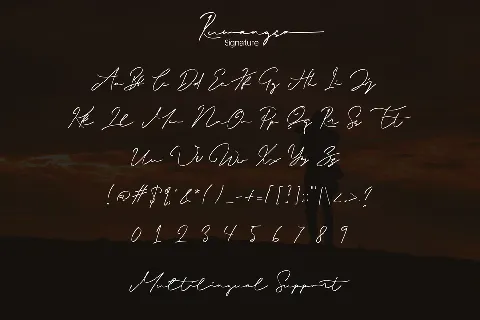 Ruwangsa
Signature
Aa Bb Cc Dd Ee Ff Gg Hh Ii Jj
Kk Ll Mm Nn Oo Pp Qq Rr Ss Tt
Uu Vv Ww Xx Yy Zz
!@#$%^&*()_-+={[}]:;"'|\<,>.?
0 1 2 3 4 5 6 7 8 9
Multilingual Support